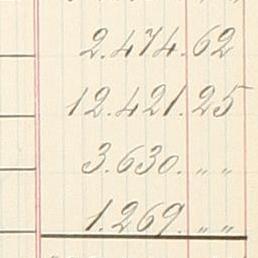 2.474.62
12.421.25
3.630. " "
1.269. " "